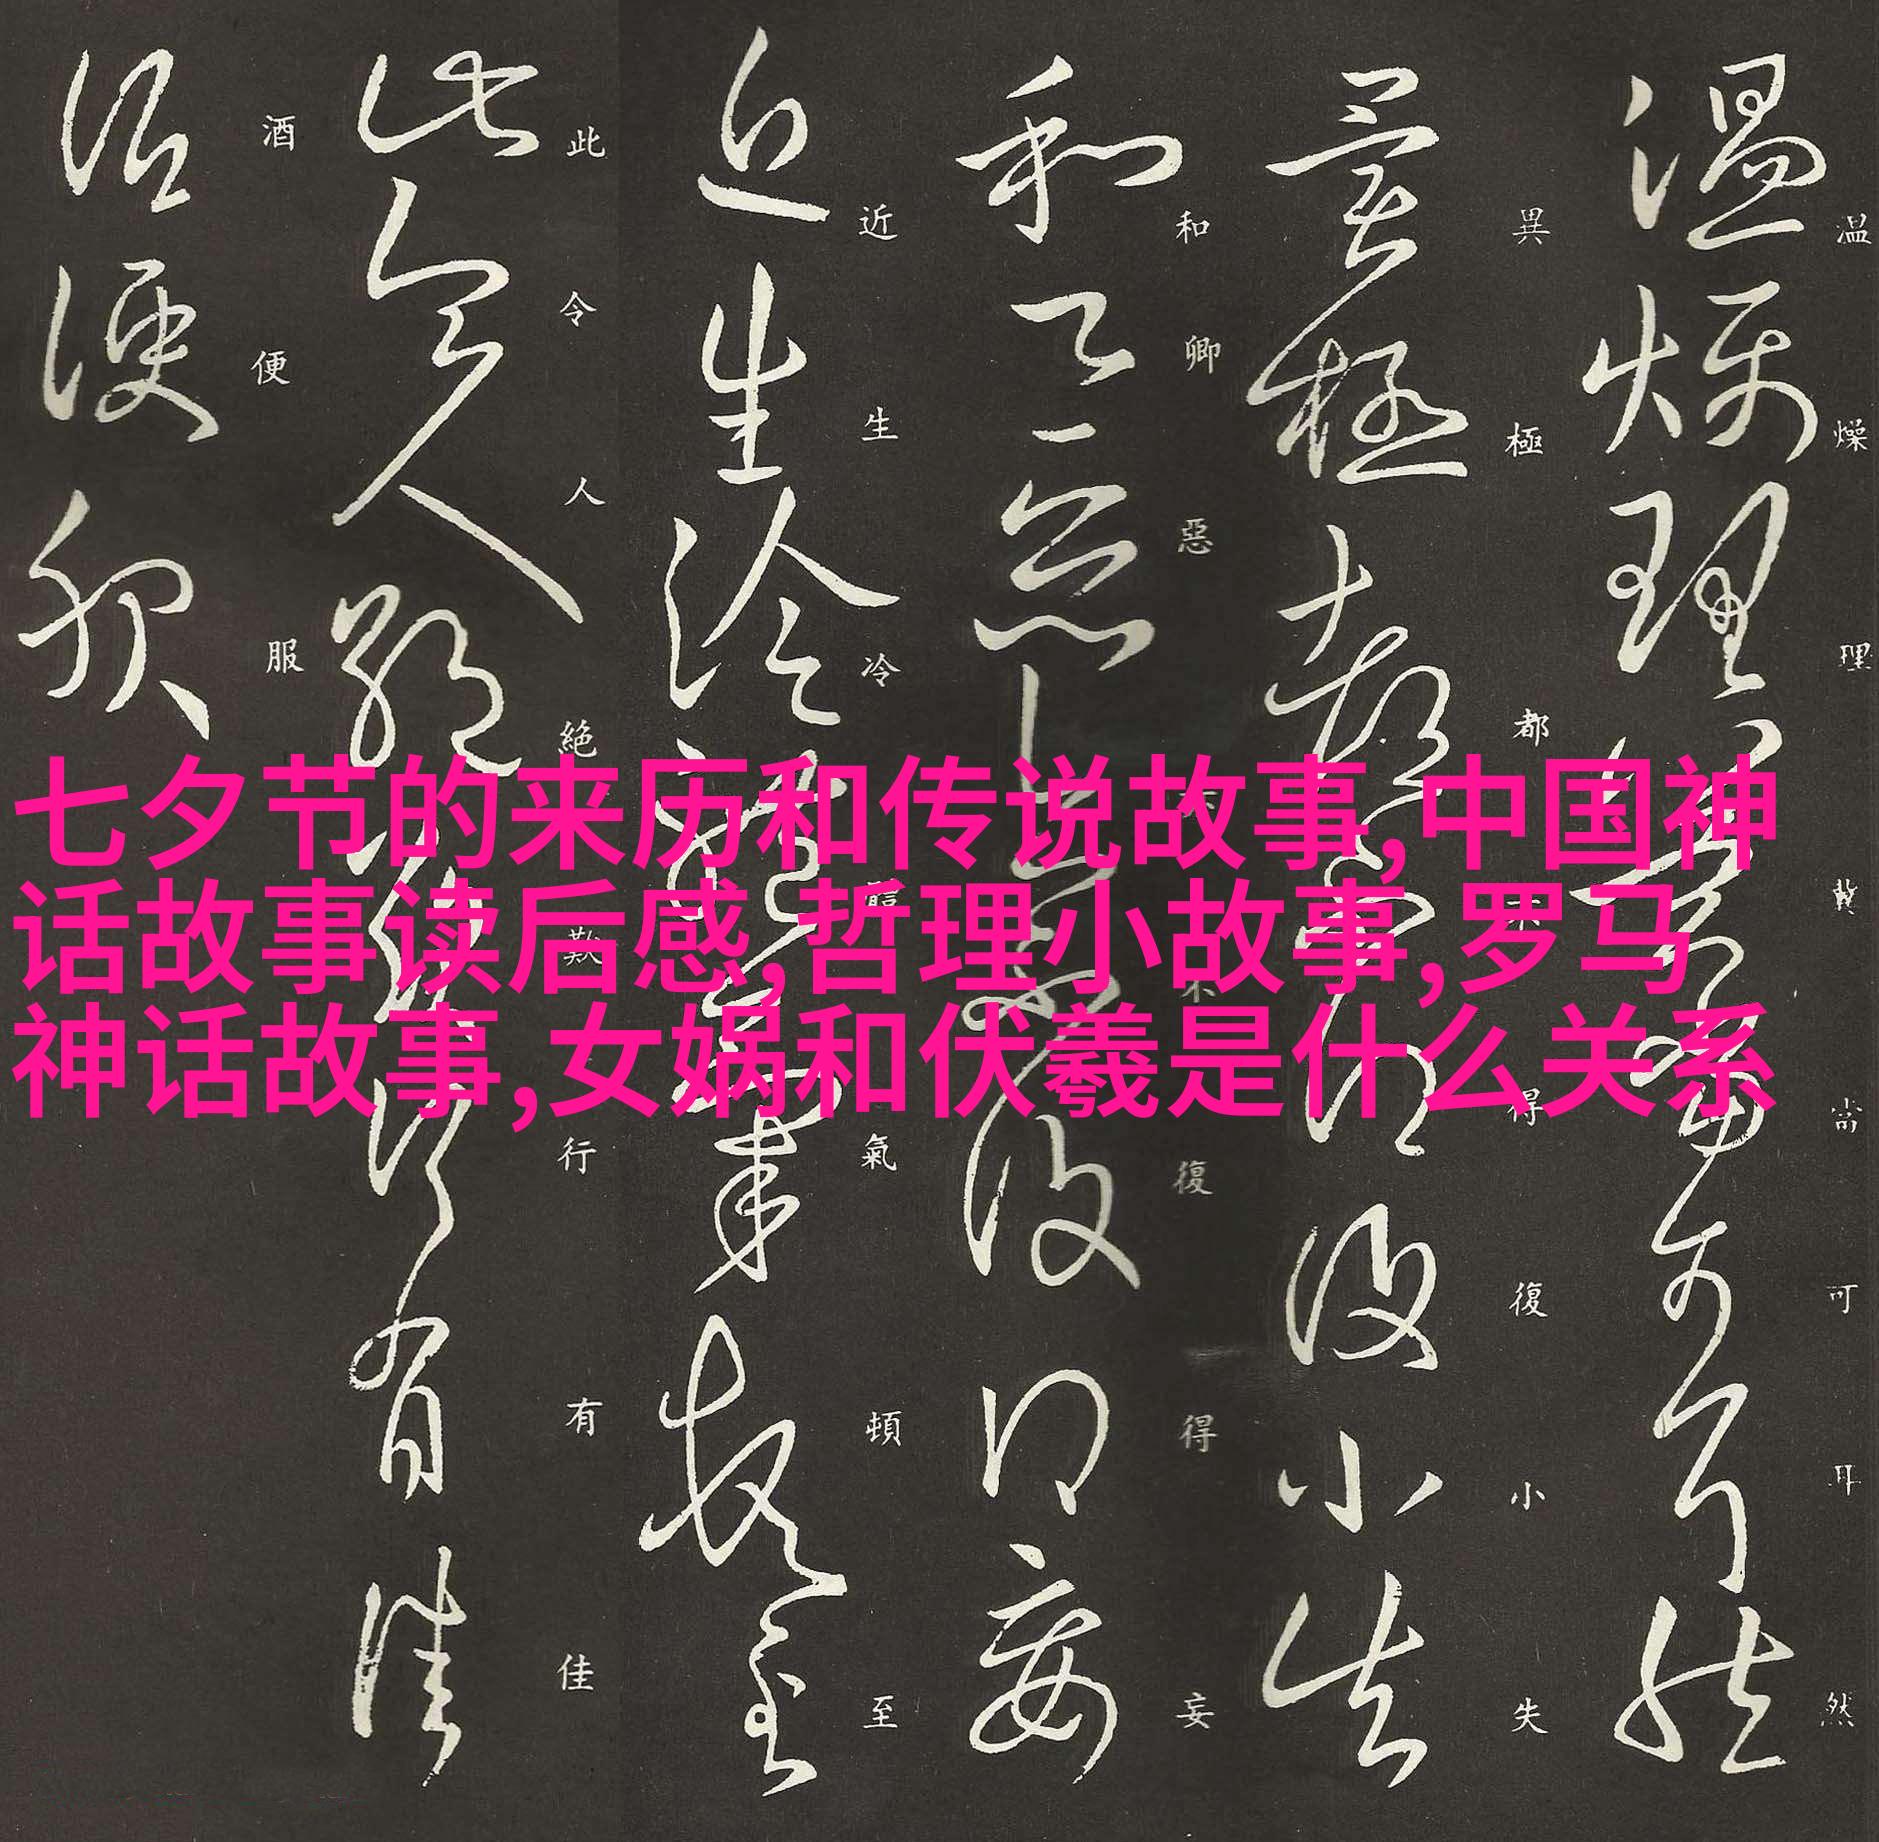 七夕节的来历和传说故事,中国神
话故事读后感,哲理小故事,罗马
神话故事,女娲和伏羲是什么关系
温燥理冀當可耳然
異極都不得復小失
和卿惡不復得妄
近生冷體氣頓至
此令人絶歎行有佳
酒便服